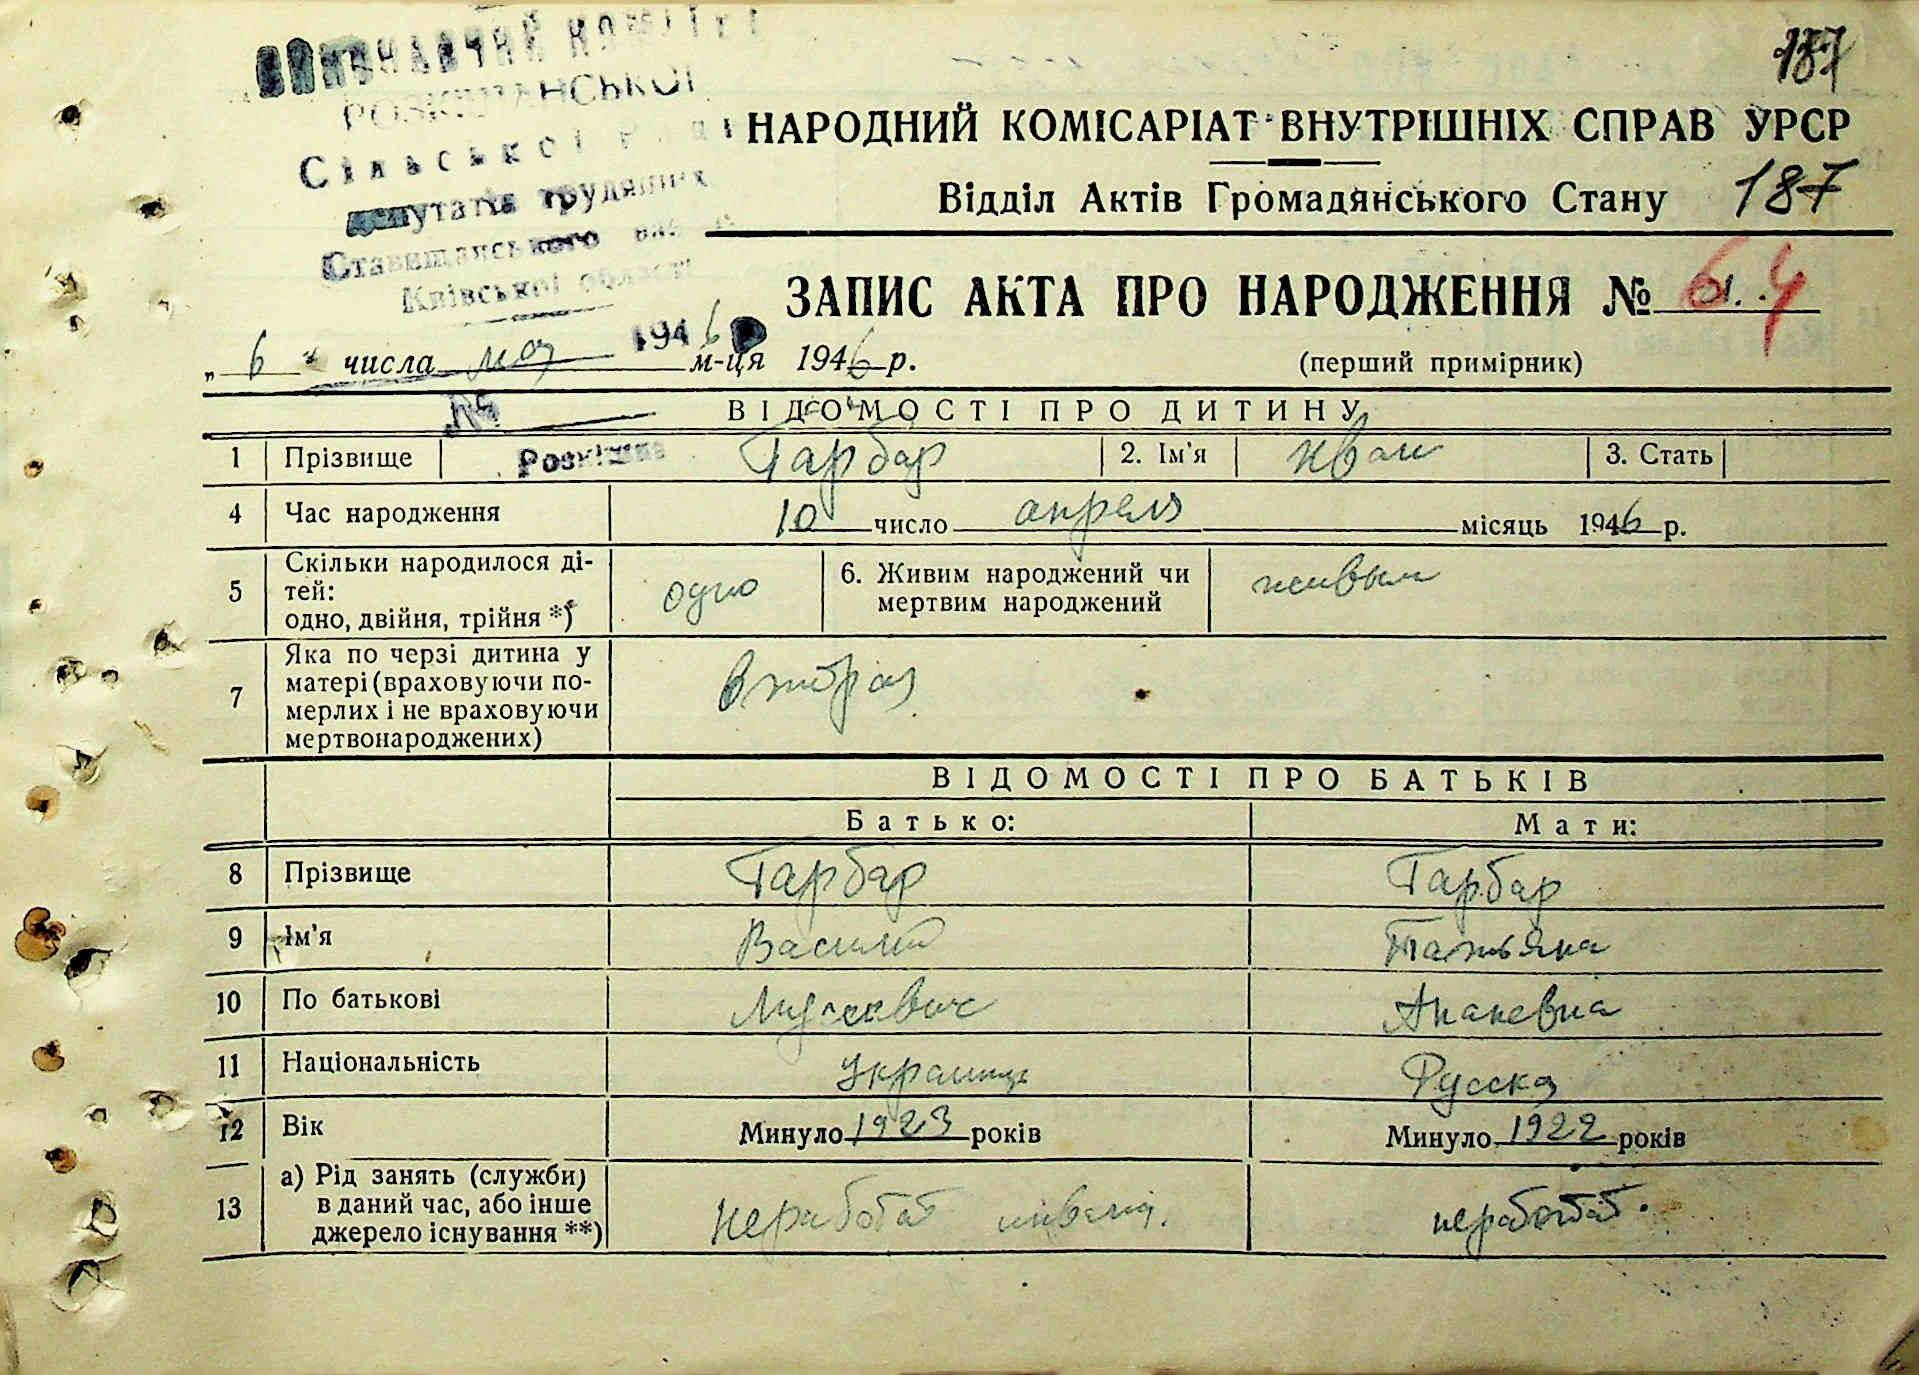 187
ВИКОНАВЧИЙ КОМІТЕТ
РОЗКІШАНСЬКОЇ
Сільської Ради
депутатів трудящих
Ставищанського
Київської області
194
№
Розкішна
НАРОДНИЙ КОМІСАРІАТ ВНУТРІШНІХ СПРАВ УРСР
Відділ Актів Громадянського Стану 187
ЗАПИС АКТА ПРО НАРОДЖЕННЯ № 64
„ 6 числа мая м-ця 1946 р.
(перший примірник)
ВІДОМОСТІ ПРО ДИТИНУ
1 Прізвище Гарбар 2. Ім'я Иван 3. Стать
4 Час народження 10 число апреля місяць 1946 р.
5 Скільки народилося ді-
тей:
одно, двійня, трійня *) одно 6. Живим народжений чи
мертвим народжений живым
7 Яка по черзі дитина у
матері (враховуючи по-
мерлих і не враховуючи
мертвонароджених) вторая
ВІДОМОСТІ ПРО БАТЬКІВ
Батько: Мати:
8 Прізвище Гарбар Гарбар
9 Ім'я Василий Татьяна
10 По батькові Ананевна
11 Національність Украинць Русска
12 Вік Минуло 1923 років Минуло 1922 років
13 а) Рід занять (служби)
в даний час, або інше
джерело існування **) неработат инвалид. неработат.